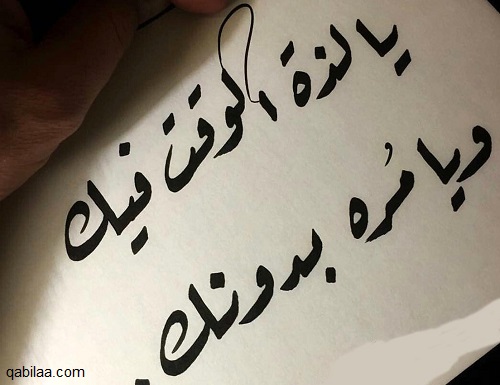 يا لذة الوقت فيك
ويا مُره بدونك.
qabilaa.com